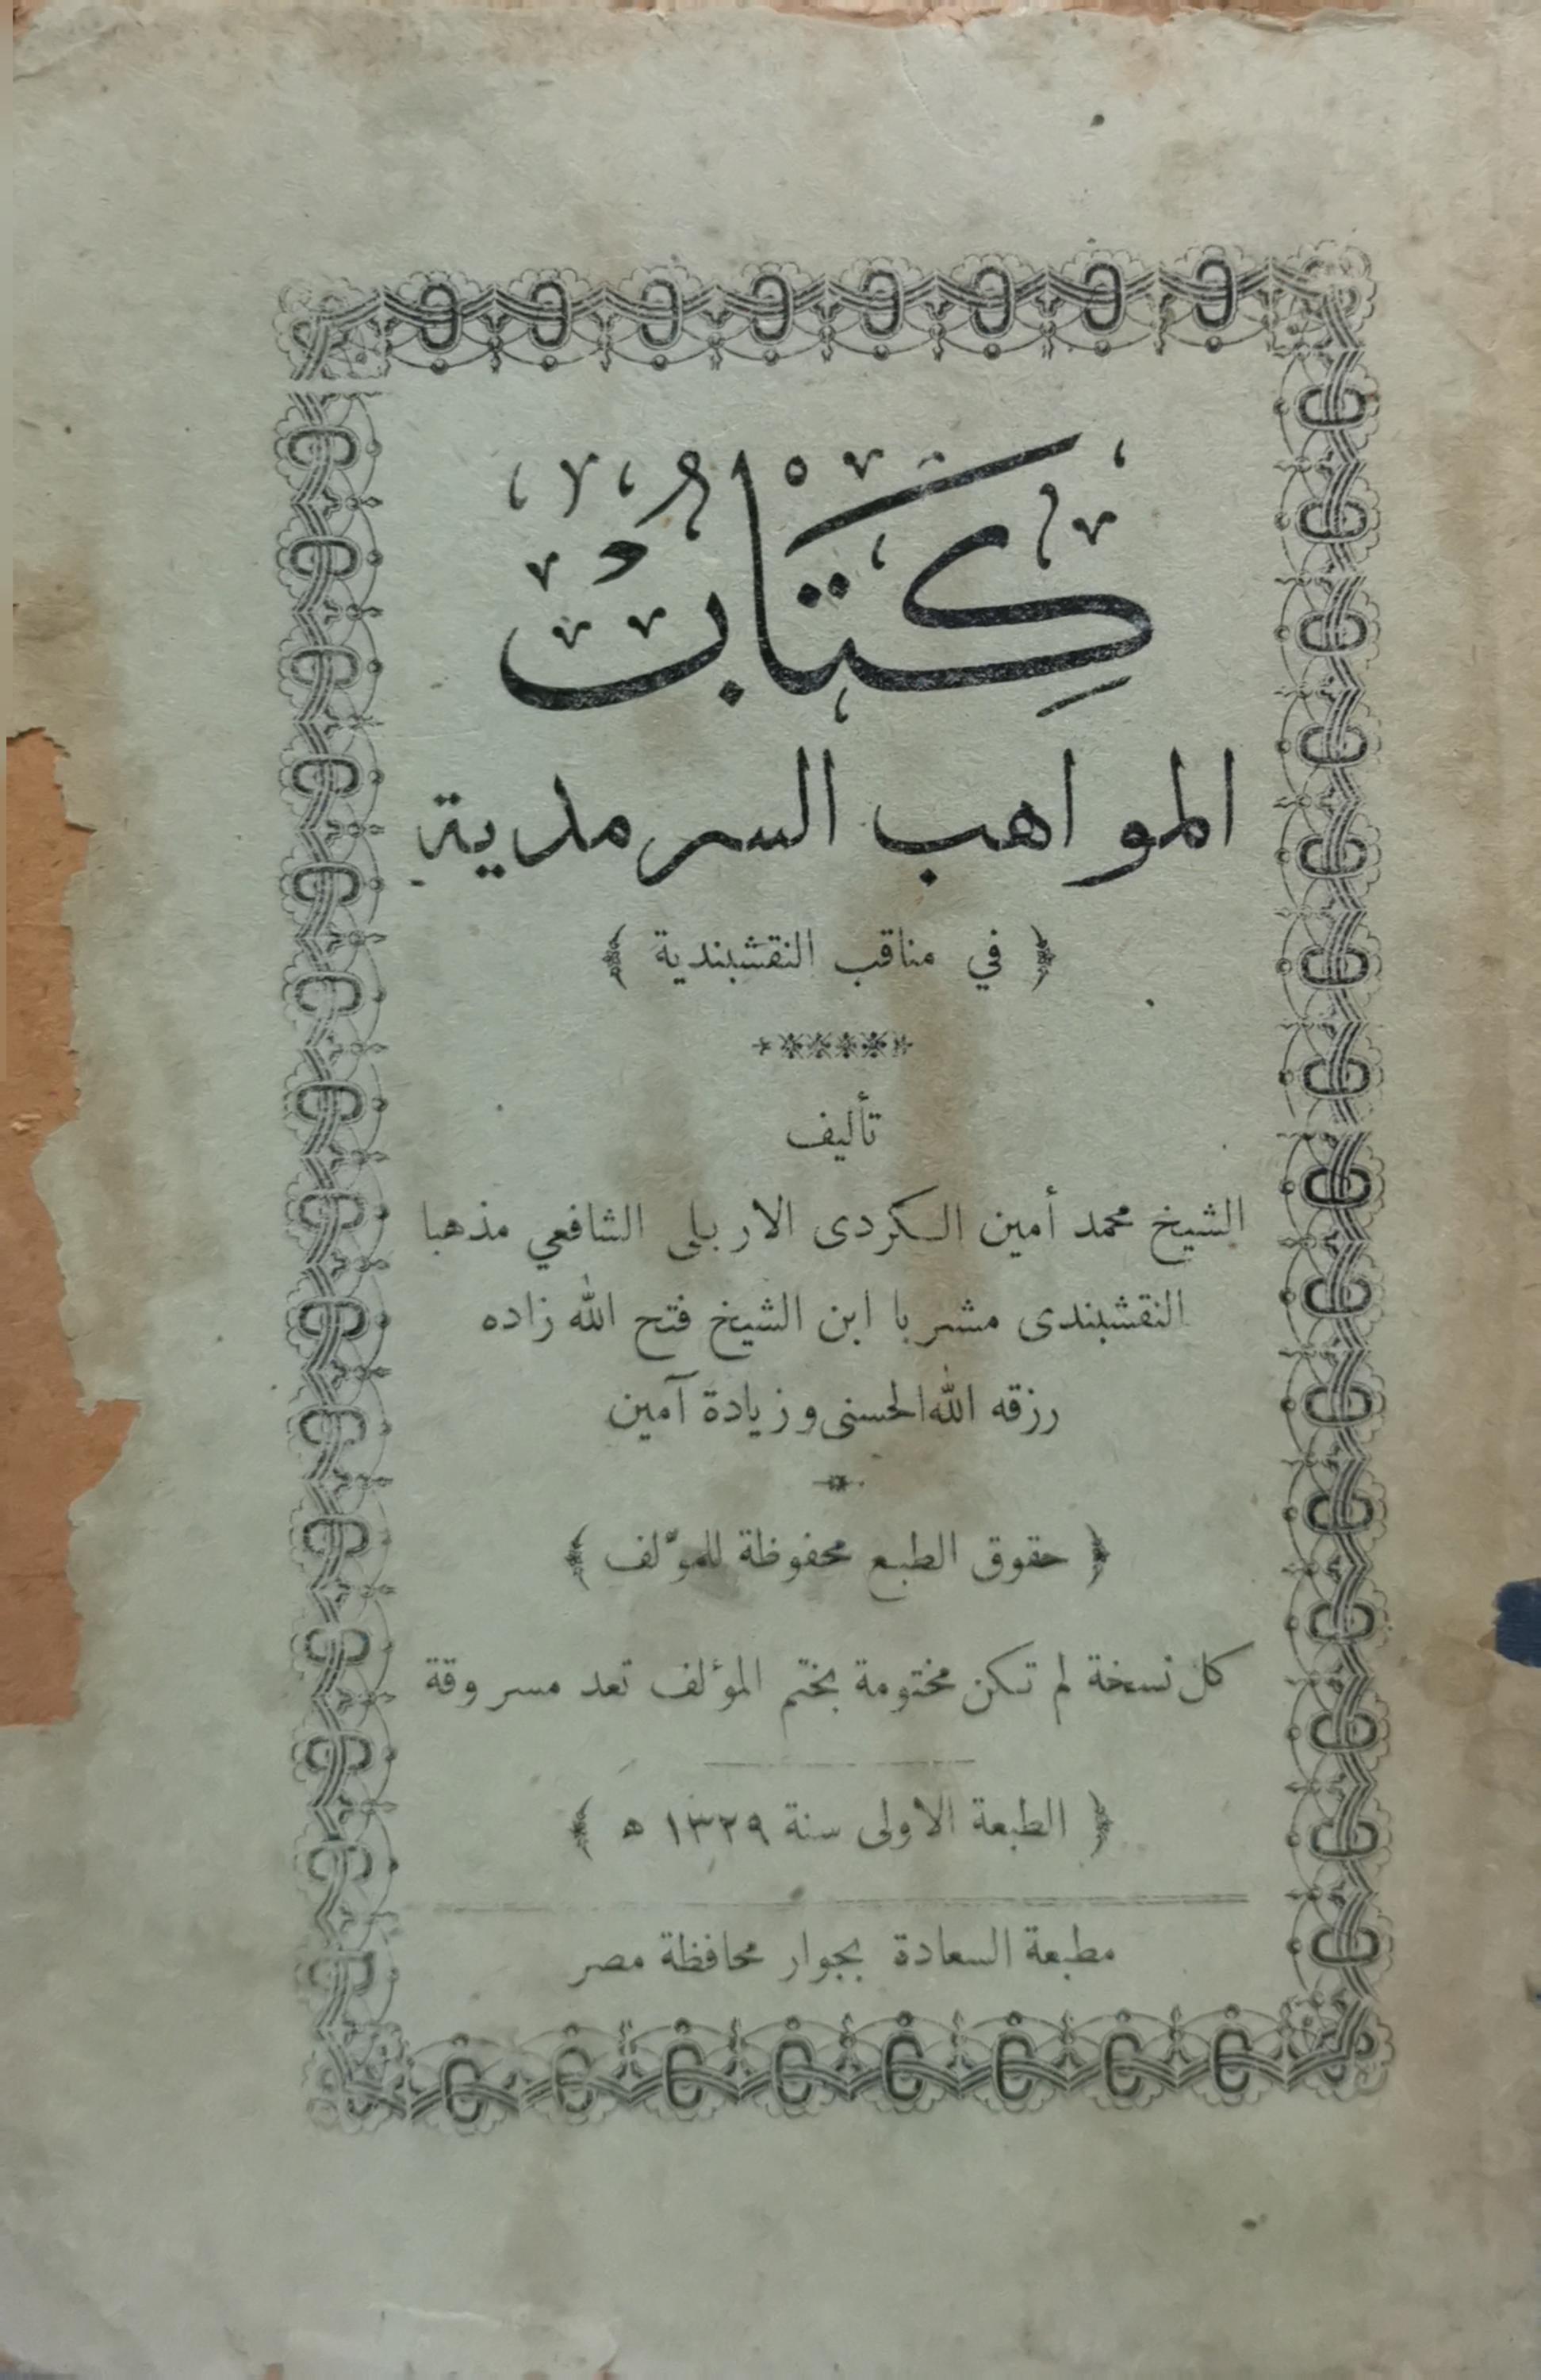 كِتَابُ
المواهب السرمدية
﴿ في مناقب النقشبندية ﴾
تأليف
الشيخ محمد أمين الكردى الاربلى الشافعي مذهبا
النقشبندى مشربا ابن الشيخ فتح الله زاده
رزقه الله الحسنى وزيادة آمين
﴿ حقوق الطبع محفوظة للمؤلف ﴾
كل نسخة لم تكن مختومة بختم المؤلف تعد مسروقة
﴿ الطبعة الاولى سنة ١٣٢٩ ه ﴾
مطبعة السعادة بجوار محافظة مصر